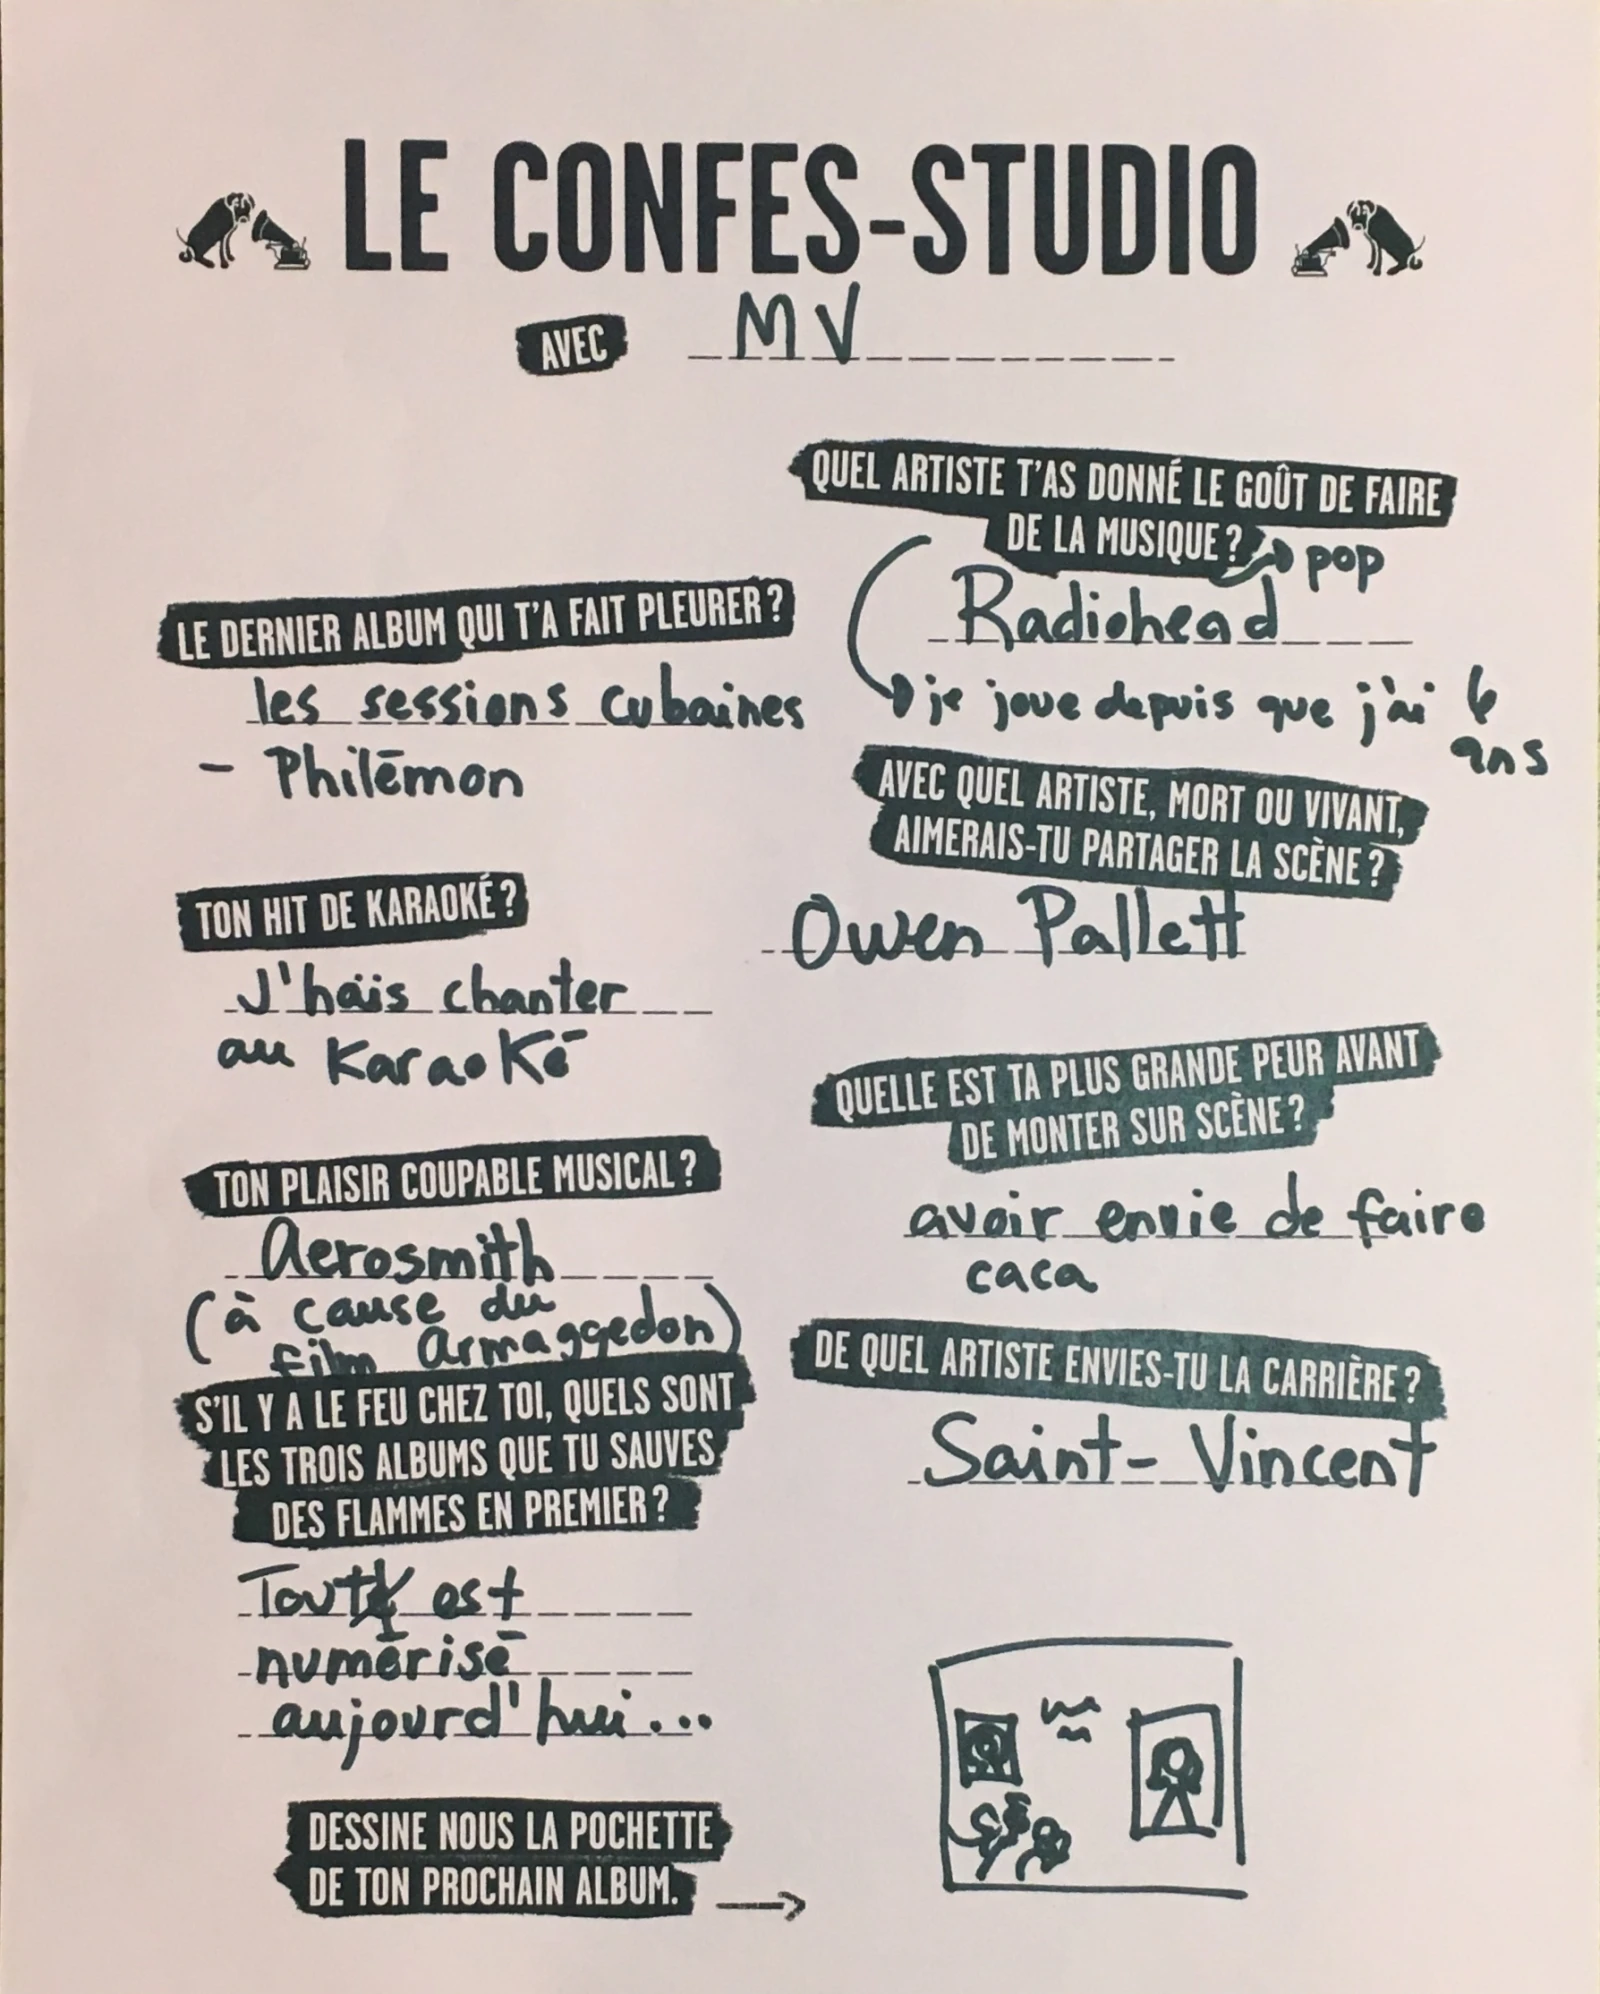 LE CONFES-STUDIO
AVEC MV
LE DERNIER ALBUM QUI T'A FAIT PLEURER?
les sessions cubaines
- Philémon
TON HIT DE KARAOKÉ?
J'haïs chanter
au Karaoké
TON PLAISIR COUPABLE MUSICAL?
Aerosmith
(à cause du
film Armaggedon)
S'IL Y A LE FEU CHEZ TOI, QUELS SONT
LES TROIS ALBUMS QUE TU SAUVES
DES FLAMMES EN PREMIER?
Tout est
numérisé
aujourd'hui...
DESSINE NOUS LA POCHETTE
DE TON PROCHAIN ALBUM.
QUEL ARTISTE T'AS DONNÉ LE GOÛT DE FAIRE
DE LA MUSIQUE?
pop
Radiohead
je joue depuis que j'ai 6
ans
AVEC QUEL ARTISTE, MORT OU VIVANT,
AIMERAIS-TU PARTAGER LA SCÈNE?
Owen Pallett
QUELLE EST TA PLUS GRANDE PEUR AVANT
DE MONTER SUR SCÈNE?
avoir envie de faire
caca
DE QUEL ARTISTE ENVIES-TU LA CARRIÈRE?
Saint-Vincent